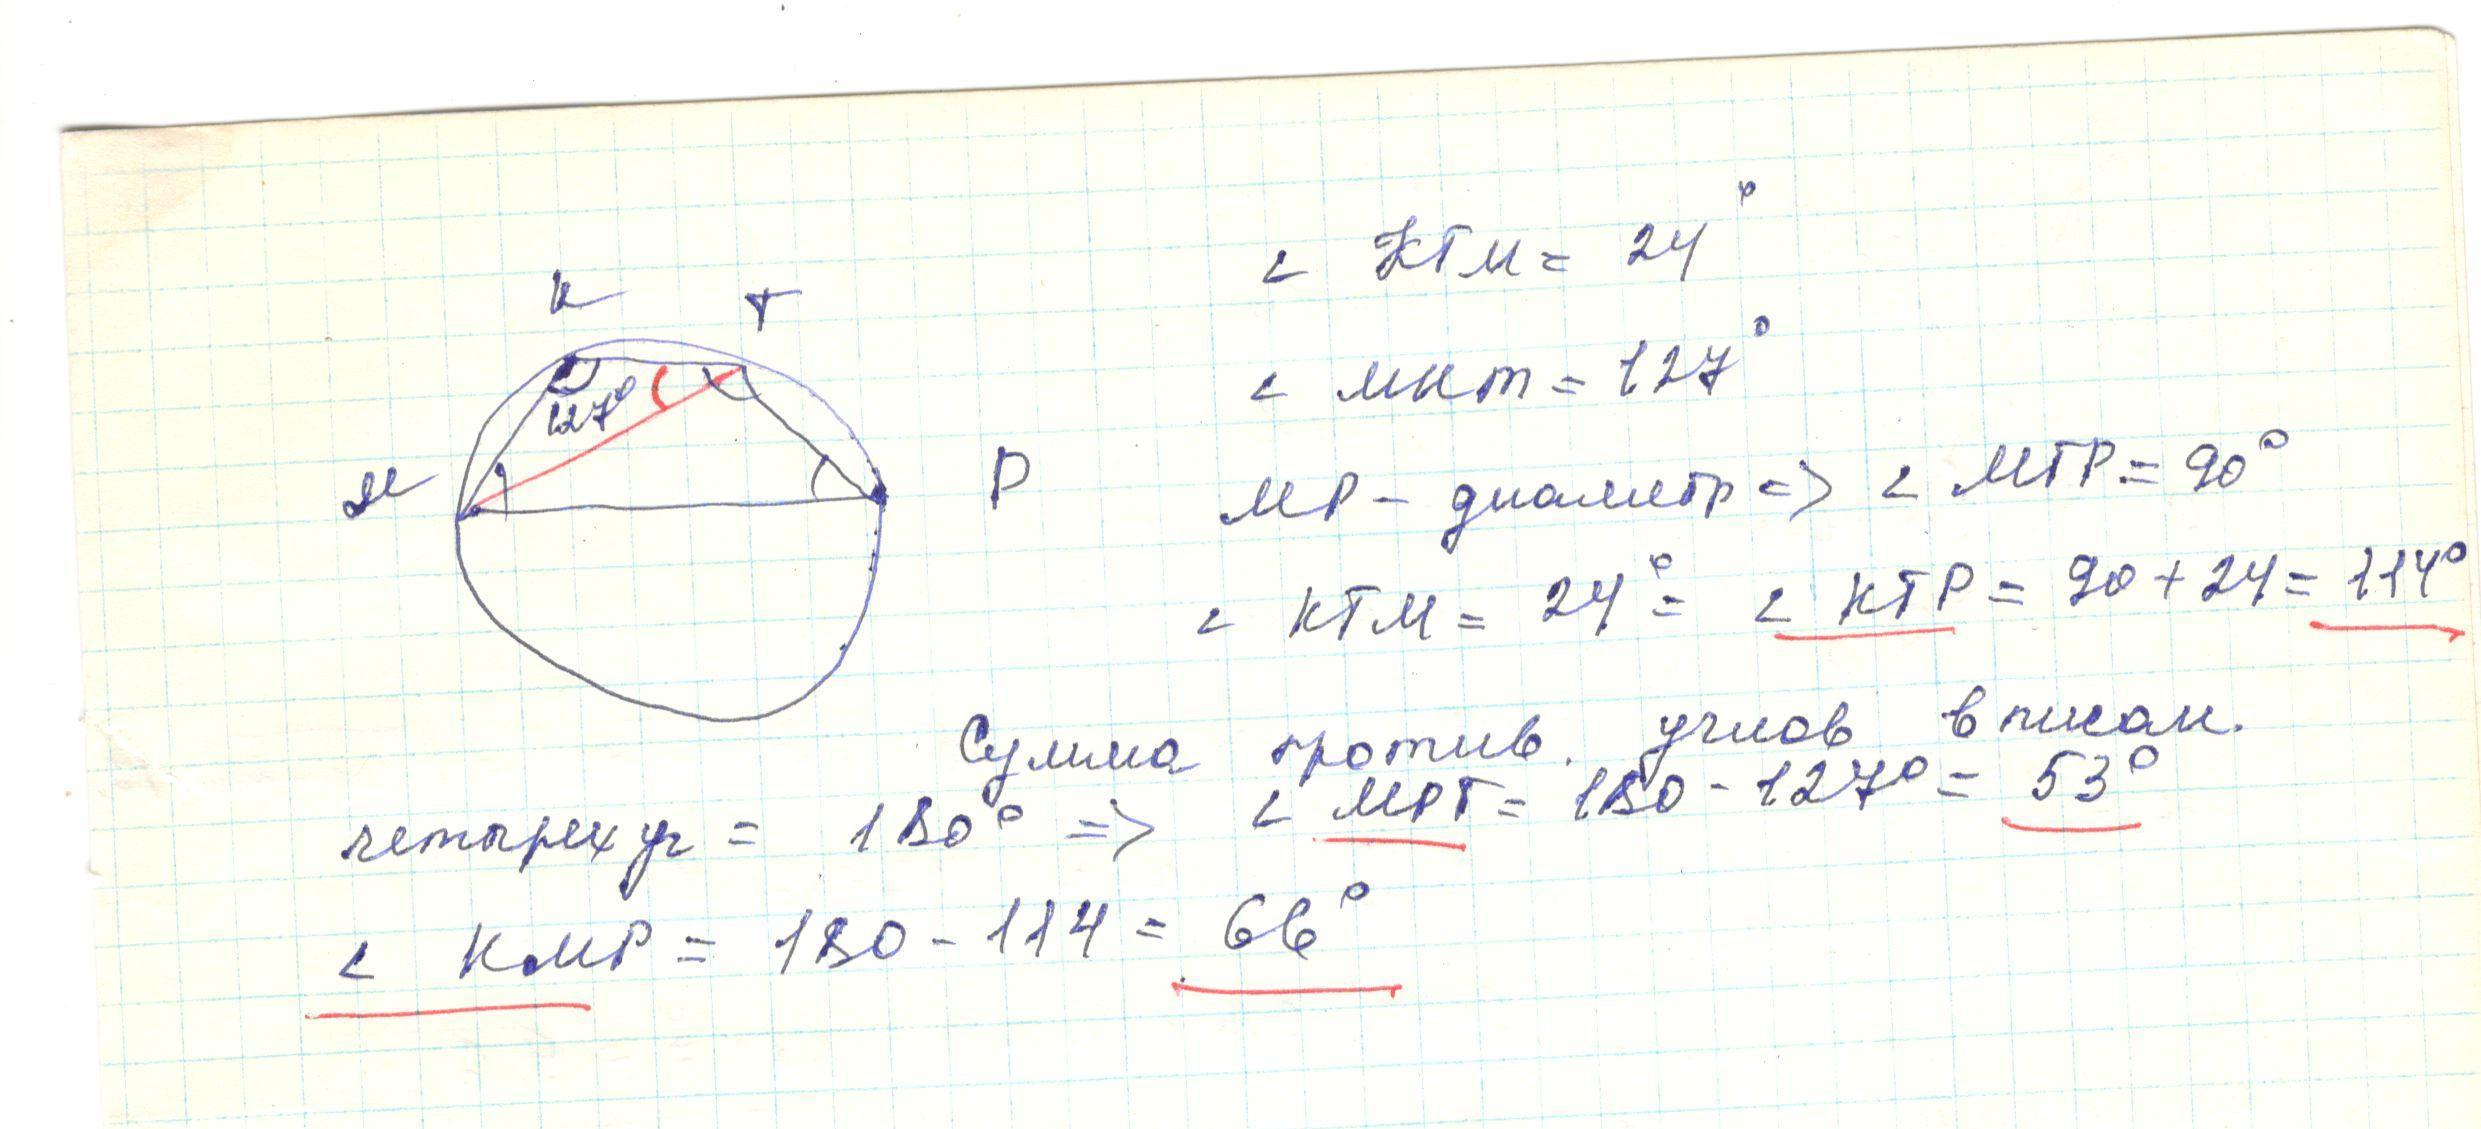 К Т
127°
М
Р
∠ КТМ = 24°
∠ МКТ = 127°
МР - диаметр => ∠ МТР = 90°
∠ КТМ = 24° = ∠ КТР = 90 + 24 = 114°
Сумма против. углов вписан.
четырехуг = 180° => ∠ МРТ = 180 - 127° = 53°
∠ КМР = 180 - 114 = 66°